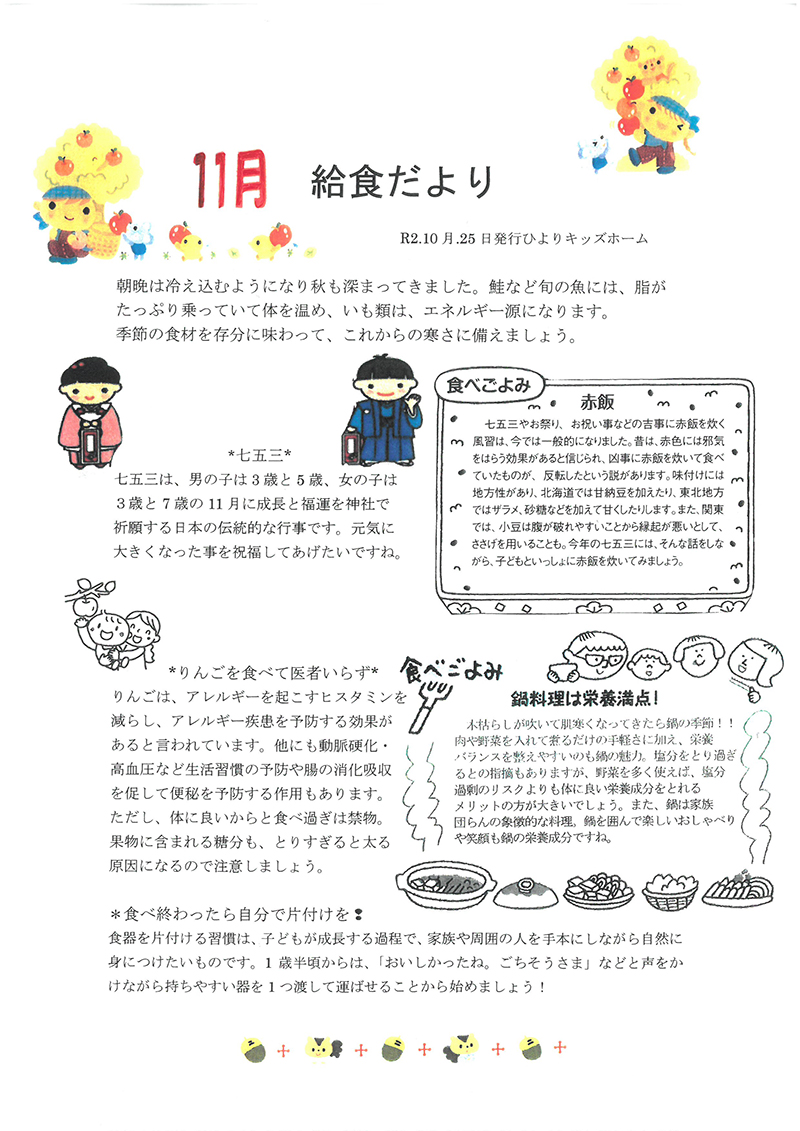 11月 給食だより
R2.10月.25日発行ひよりキッズホーム
朝晩は冷え込むようになり秋も深まってきました。鮭など旬の魚には、脂が
たっぷり乗っていて体を温め、いも類は、エネルギー源になります。
季節の食材を存分に味わって、これからの寒さに備えましょう。
*七五三*
七五三は、男の子は3歳と5歳、女の子は
３歳と7歳の11月に成長と福運を神社で
祈願する日本の伝統的な行事です。元気に
大きくなった事を祝福してあげたいですね。
食べごよみ
赤飯
七五三やお祭り、お祝い事などの吉事に赤飯を炊く
風習は、今では一般的になりました。昔は、赤色には邪気
をはらう効果があると信じられ、凶事に赤飯を炊いて食べ
ていたものが、反転したという説があります。味付けには
地方性があり、北海道では甘納豆を加えたり、東北地方
ではザラメ、砂糖などを加えて甘くしたりします。また、関東
では、小豆は腹が破れやすいことから縁起が悪いとして、
ささげを用いることも。今年の七五三には、そんな話をしな
がら、子どもといっしょに赤飯を炊いてみましょう。
*りんごを食べて医者いらず*
りんごは、アレルギーを起こすヒスタミンを
減らし、アレルギー疾患を予防する効果が
あると言われています。他にも動脈硬化・
高血圧など生活習慣の予防や腸の消化吸収
を促して便秘を予防する作用もあります。
ただし、体に良いからと食べ過ぎは禁物。
果物に含まれる糖分も、とりすぎると太る
原因になるので注意しましょう。
食べごよみ
鍋料理は栄養満点！
木枯らしが吹いて肌寒くなってきたら鍋の季節！！
肉や野菜を入れて煮るだけの手軽さに加え、栄養
バランスを整えやすいのも鍋の魅力。塩分をとり過ぎ
るとの指摘もありますが、野菜を多く使えば、塩分
過剰のリスクよりも体に良い栄養成分をとれる
メリットの方が大きいでしょう。また、鍋は家族
団らんの象徴的な料理。鍋を囲んで楽しいおしゃべり
や笑顔も鍋の栄養成分ですね。
＊食べ終わったら自分で片付けを❢
食器を片付ける習慣は、子どもが成長する過程で、家族や周囲の人を手本にしながら自然に
身につけたいものです。1歳半頃からは、「おいしかったね。ごちそうさま」などと声をか
けながら持ちやすい器を1つ渡して運ばせることから始めましょう！